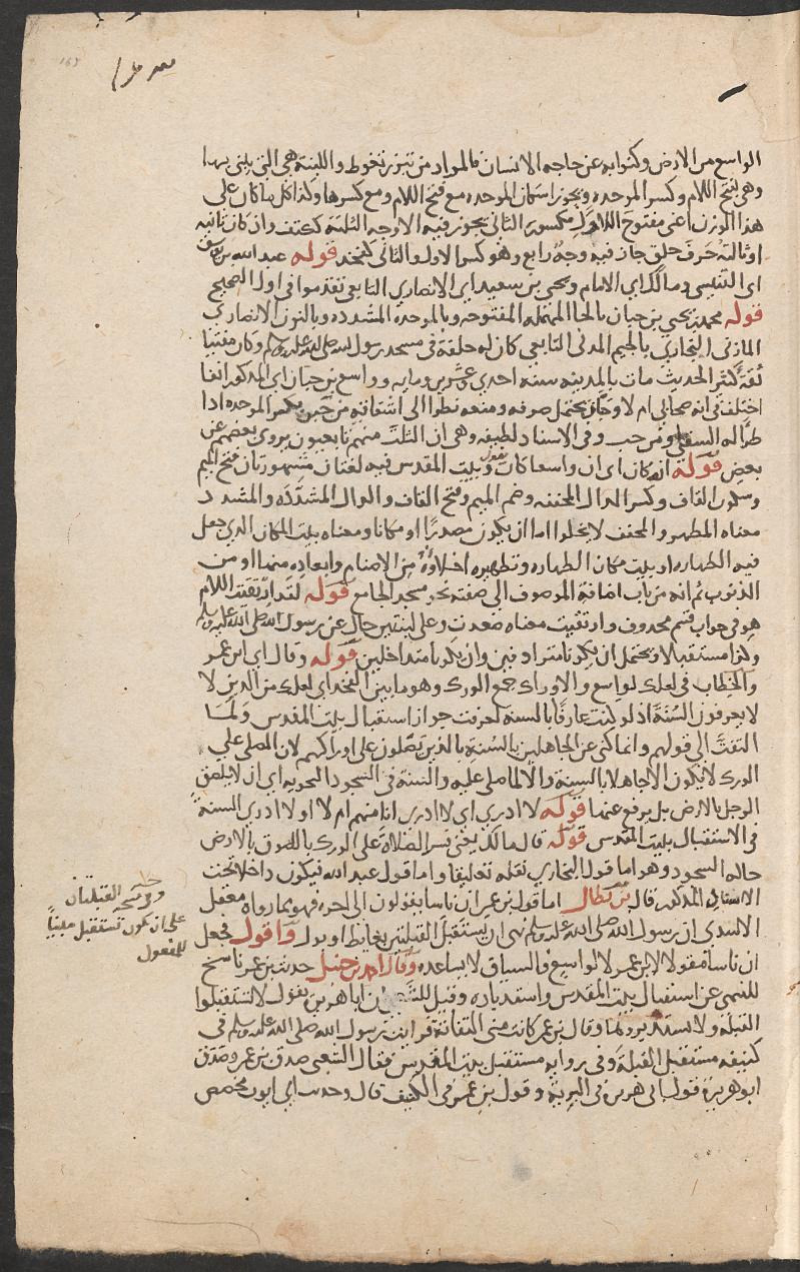 الواسع من الارض وكنوا به عن حاجه الانسان فالمراد من تبرز تغوط واللبنة هي التي يبنى بها
وهي بفتح اللام وكسر الموحده ويجوز اسكان الموحده مع فتح اللام ومع كسرها وكذا كل ما كان على
هذا الوزن اعني مفتوح الاول مكسور الثاني يجوز فيه الاوجه الثلثة ككتف وان كان ثانيه
او ثالثه حرف حلق جاز فيه وجه رابع وهو كسر الاول والثاني كفخذ قوله عبد الله بن يوسف
اي التنيسي ومالك اي الامام ويحيى بن سعيد اي الانصاري التابعي تقدموا في اول الصحيح
قوله محمد بن يحيى بن حبان بالحا المهمله المفتوحه وبالموحدة المشدده وبالنون الانصاري
المازني النجاري بالجيم المدني التابعي كان له حلقة في مسجد رسول الله صلى الله عليه وسلم وكان مفتيا
ثقة كثير الحديث مات بالمدينه سنه احدي وعشرين ومايه وواسع بن حبان اي المذكور انفا
اختلف في انه صحابي ام لا وحبان يحتمل صرفه ومنعه نظرا الى اشتقاقه من حبن بكسر الموحده اذا
طرا له السقي ومن حب وفي الاسناد لطيفه وهي ان الثلث منهم تابعيون يروي بعضهم عن
بعض قوله انه كان اي ان واسعا كان يقول وبيت المقدس فيه لغتان مشهورتان فتح الميم
وسكون القاف وكسر الدال المخففه وضم الميم وفتح القاف والدال المشدده والمشدد
معناه المطهر والمخفف لا يخلوا اما ان يكون مصدرا او مكانا ومعناه بيت المكان الذي جعل
فيه الطهاره او بيت مكان الطهاره وتطهيره اخلاوه من الاصنام وابعاده منها او من
الذنوب ثم انه من باب اضافة الموصوف الى صفته نحو مسجد الجامع قوله لقد ارتقيت اللام
هو في جواب قسم محذوف وارتقيت معناه صعدت وعلى لبنتين حال عن رسول الله صلى الله عليه وسلم
وكذا مستقبلا ويحتمل ان يكونا مترادفين وان يكونا متداخلين قوله وقال اي ابن عمر
والخطاب في لعلك لواسع والاوراك جمع الورك وهو ما بين الفخذ اي لعلك من الذين لا
لا يعرفون السنة اذ لو كنت عارفا بالسنة لعرفت جواز استقبال بيت المقدس ولما
التفت الى قولهم وانما كنى عن الجاهلين بالسنة بالذين يصلون على اوراكهم لان المصلي على
الورك لا يكون الا جاهلا بالسنة والا لما صلى عليه والسنة في السجود التخويه اي ان لا يلصق
الرجل بالارض بل يرفع عنها قوله لا ادري اي لا ادري انا منهم ام لا او لا ادري السنة
في الاستقبال ببيت المقدس قوله قال مالك يعني فسر الصلاة على الورك باللصوق بالارض
حاله السجود وهو اما قول البخاري نقله تعليقا واما قول عبد الله فيكون داخلا تحت
الاسناد المذكور قال بن بطال اما قول بن عمر ان ناسا يقولون الى اخره فهو بما رواه معقل
الاسدي ان رسول الله صلى الله عليه وسلم نهى ان يستقبل القبلتين بغايط او بول واقول جعل
ان ناسا مقولا لابن عمر لا لواسع والسياق لا يساعده وقال احمد بن حنبل حديث بن عمر ناسخ
للنهي عن استقبال بيت المقدس واستدباره وقيل للشعبي ان ابا هريره يقول لا تستقبلوا
القبلة ولا تستدبروها وقال بن عمر كانت مني التفاتة فرايت رسول الله صلى الله عليه وسلم في
كنيفه مستقبل القبلة وفي روايه مستقبل بيت المقدس فقال الشعبي صدق بن عمر وصدق
ابو هريرة قول ابي هريره في البرية وقول بن عمر في الكنيف قال وحديث ابي ايوب مخصص
القبلتان
على ان يكون تستقبل مبنيا
للمفعول